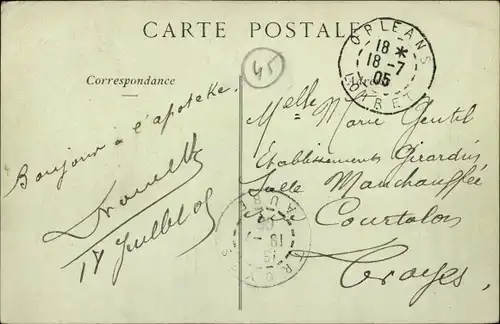 CARTE POSTALE
Correspondance
45
ORLEANS
18 *
18 -7
05
LOIRET
Bonjour à l'apoteke.
17 Juillet 05
Melle Marie Gentil
Etablissements Girardin
Salle Manchauffée
Rue Courtalon
Troyes
TROYES
AUBE